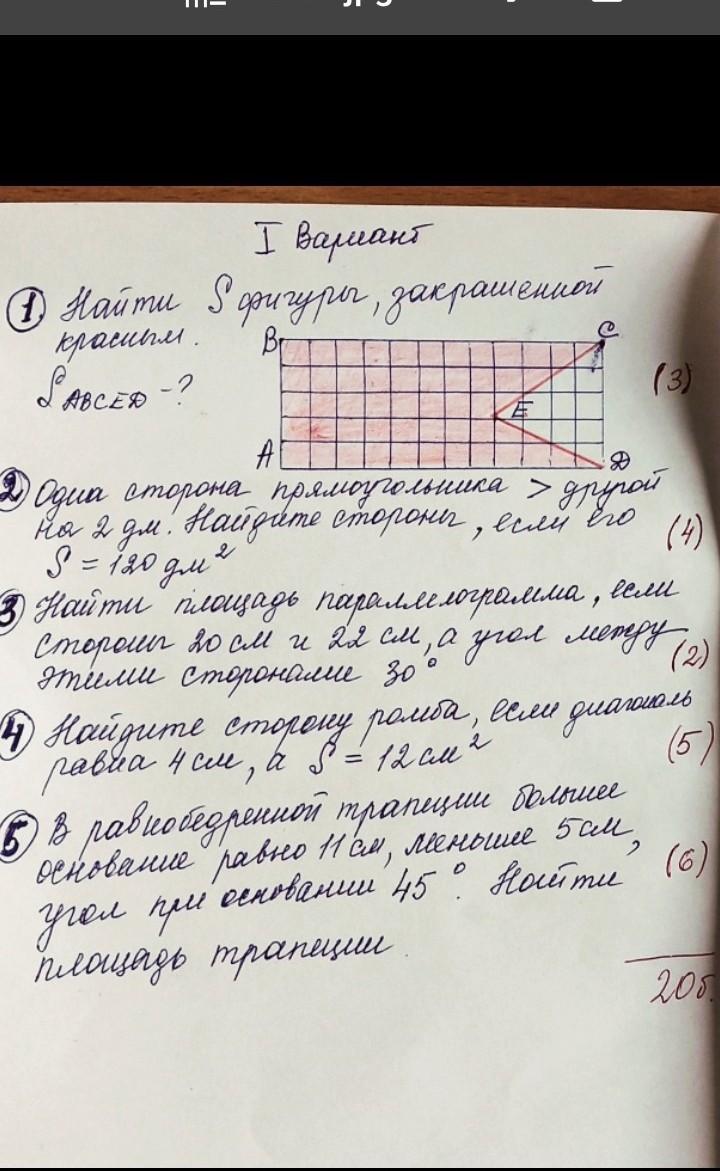 I Вариант
1. Найти S фигуры, закрашенной
красным.
S ABCED - ?
B C
E
A D
(3)
2 Одна сторона прямоугольника > другой
на 2 дм. Найдите стороны, если его
S = 120 дм²
(4)
3 Найти площадь параллелограмма, если
стороны 20 см и 22 см, а угол между
этими сторонами 30°
(2)
4 Найдите сторону ромба, если диагональ
равна 4 см, а S = 12 см²
(5)
5 В равнобедренной трапеции большее
основание равно 11 см, меньшее 5 см,
угол при основании 45°. Найти
площадь трапеции.
(6)
20б.